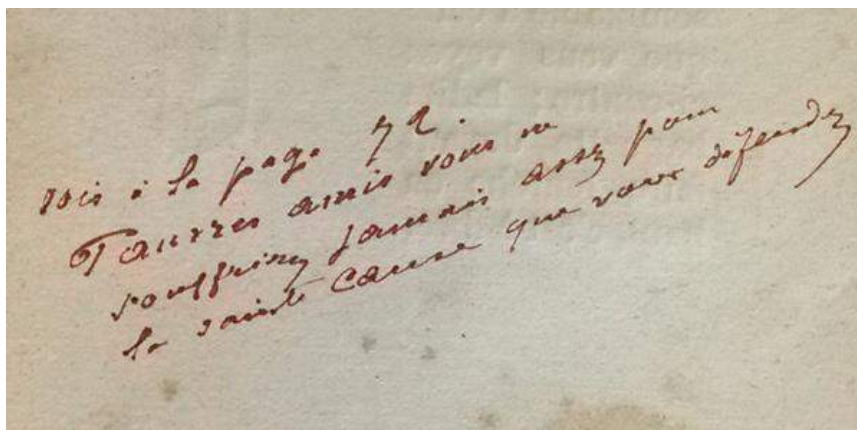 vois à la page 72.
Pauvres amis vous ne
souffrirez jamais assez pour
la sainte cause que vous défendez